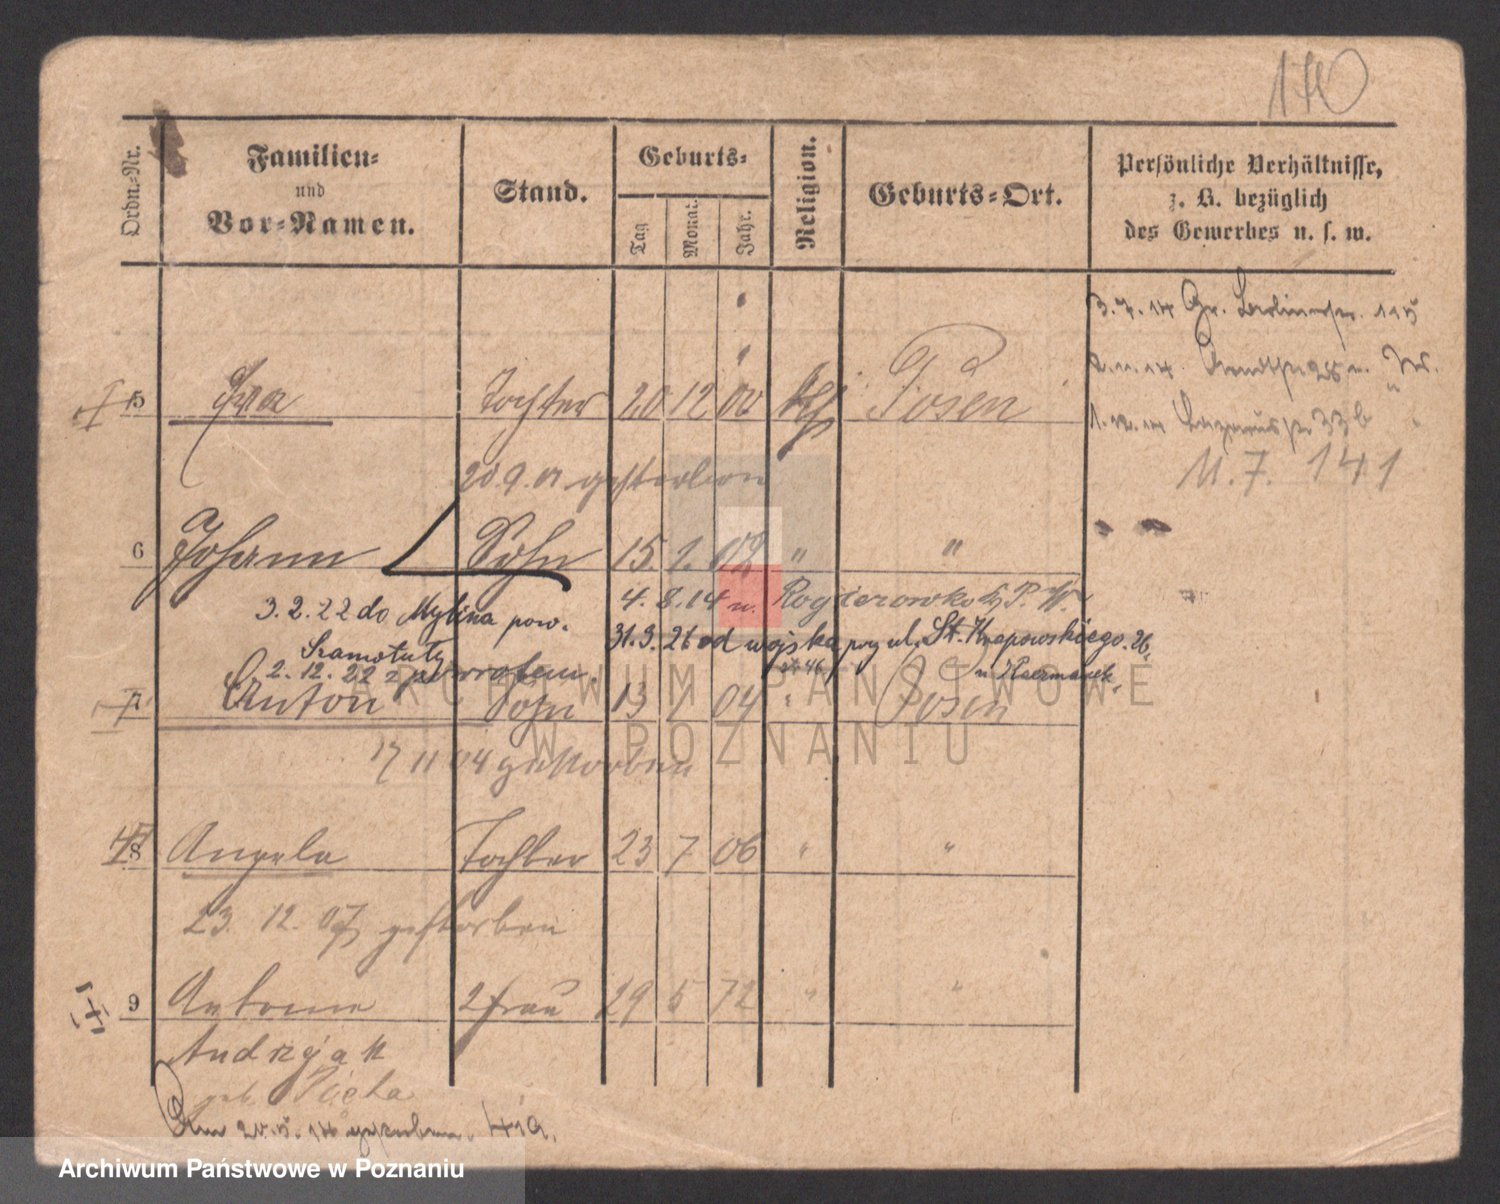 110
Ordn.-Nr.
Familien-
und
Vor-Namen.
Stand.
Geburts-
Tag
Monat.
Jahr.
Religion.
Geburts-Ort.
Persönliche Verhältnisse,
z. B. bezüglich
des Gewerbes u. s. w.
3.7.14 Gr. Berlinerstr. 115
1.12.14 Lazarusstr. 33b
11.7. 141
5 Eva Tochter 20 12 00 kth Posen
20 9. 01 gestorben
6 Johann Sohn 15. 1. 02 " "
3.2.22 do Mylina pow.
Szamotuły
2.12.22 z powrotem.
4. 8. 14 u.
31.3.26 od wojska przy ul. St. Knapowskiego 26,
u Kaczmarek.
7 Anton Sohn 13 1 04 " Posen
17 11 04 gestorben
8 Angela Tochter 23 7 06 " "
23. 12. 07 gestorben
9 Antonie 2 frau 29 5 72 " "
Andrzejak
geb. Piecha
Am 20.5.14 gestorben. 419.
ARCHIWUM PAŃSTWOWE
W POZNANIU
Archiwum Państwowe w Poznaniu